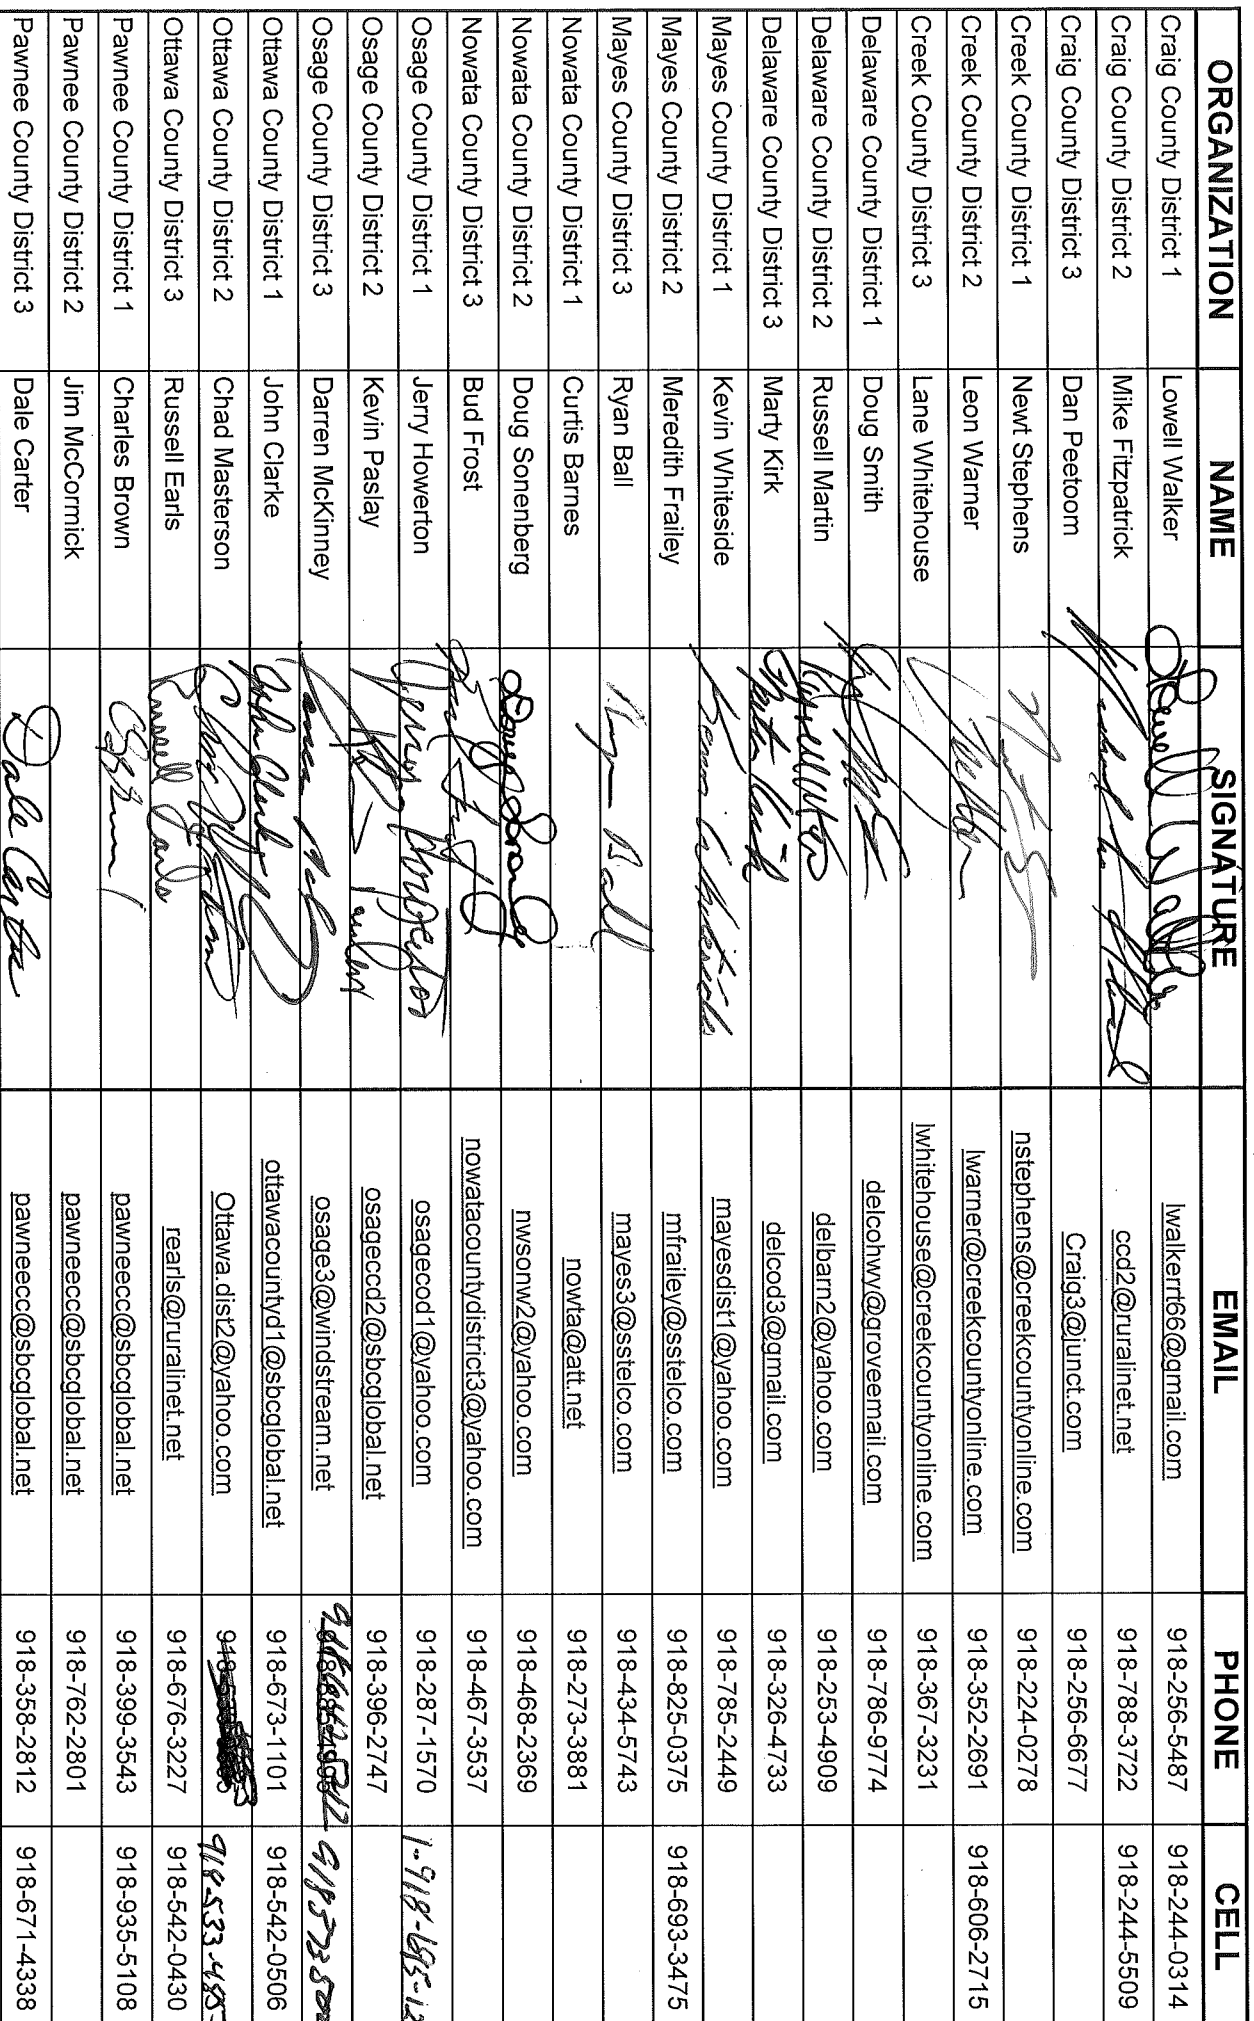 ORGANIZATION NAME SIGNATURE EMAIL PHONE CELL
Craig County District 1 Lowell Walker Lowell Walker lwalkerrt66@gmail.com 918-256-5487 918-244-0314
Craig County District 2 Mike Fitzpatrick ccd2@ruralinet.net 918-788-3722 918-244-5509
Craig County District 3 Dan Peetoom Craig3@junct.com 918-256-6677
Creek County District 1 Newt Stephens nstephens@creekcountyonline.com 918-224-0278
Creek County District 2 Leon Warner lwarner@creekcountyonline.com 918-352-2691 918-606-2715
Creek County District 3 Lane Whitehouse lwhitehouse@creekcountyonline.com 918-367-3231
Delaware County District 1 Doug Smith delcohwy@groveemail.com 918-786-9774
Delaware County District 2 Russell Martin delbarn2@yahoo.com 918-253-4909
Delaware County District 3 Marty Kirk delcod3@gmail.com 918-326-4733
Mayes County District 1 Kevin Whiteside Kevin Whiteside mayesdist1@yahoo.com 918-785-2449
Mayes County District 2 Meredith Frailey mfrailey@sstelco.com 918-825-0375 918-693-3475
Mayes County District 3 Ryan Ball Ryan Ball mayes3@sstelco.com 918-434-5743
Nowata County District 1 Curtis Barnes nowta@att.net 918-273-3881
Nowata County District 2 Doug Sonenberg nwsonw2@yahoo.com 918-468-2369
Nowata County District 3 Bud Frost nowatacountydistrict3@yahoo.com 918-467-3537
Osage County District 1 Jerry Howerton Jerry Howerton osagecod1@yahoo.com 918-287-1570 1-918-695-12
Osage County District 2 Kevin Paslay osageccd2@sbcglobal.net 918-396-2747
Osage County District 3 Darren McKinney osage3@windstream.net
Ottawa County District 1 John Clarke John Clarke ottawacountyd1@sbcglobal.net 918-673-1101 918-542-0506
Ottawa County District 2 Chad Masterson Ottawa.dist2@yahoo.com
Ottawa County District 3 Russell Earls Russell Earls rearls@ruralinet.net 918-676-3227 918-542-0430
Pawnee County District 1 Charles Brown pawneecc@sbcglobal.net 918-399-3543 918-935-5108
Pawnee County District 2 Jim McCormick pawneecc@sbcglobal.net 918-762-2801
Pawnee County District 3 Dale Carter Dale Carter pawneecc@sbcglobal.net 918-358-2812 918-671-4338